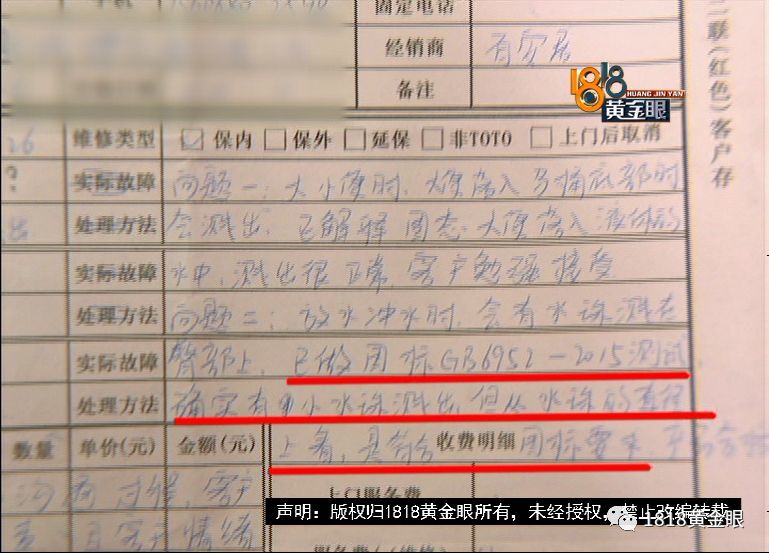 固定电话
经销商 百安居
备注
二联（红色）客户存
1818
HUANG JIN YAN
黄金眼
26 维修类型 保内 保外 延保 非TOTO 上门后取消
? 实际故障 问题一：大小便时，大便落入马桶底部时
出 处理方法 会溅出，已解释固态大便落入液体的
实际故障 水中，溅出很正常，客户勉强接受
处理方法 问题二：放水冲水时，会有水珠溅在
实际故障 臀部上，已做国标GB6952-2015测试，
处理方法 确实有小水珠溅出，但从水珠的直径
数量 单价(元) 金额(元) 上看，是符合 收费明细 国标要求，
沟通过程，客户
上门服务费
客户情绪
声明：版权归1818黄金眼所有，未经授权，禁止改编转载
1818黄金眼
服务费